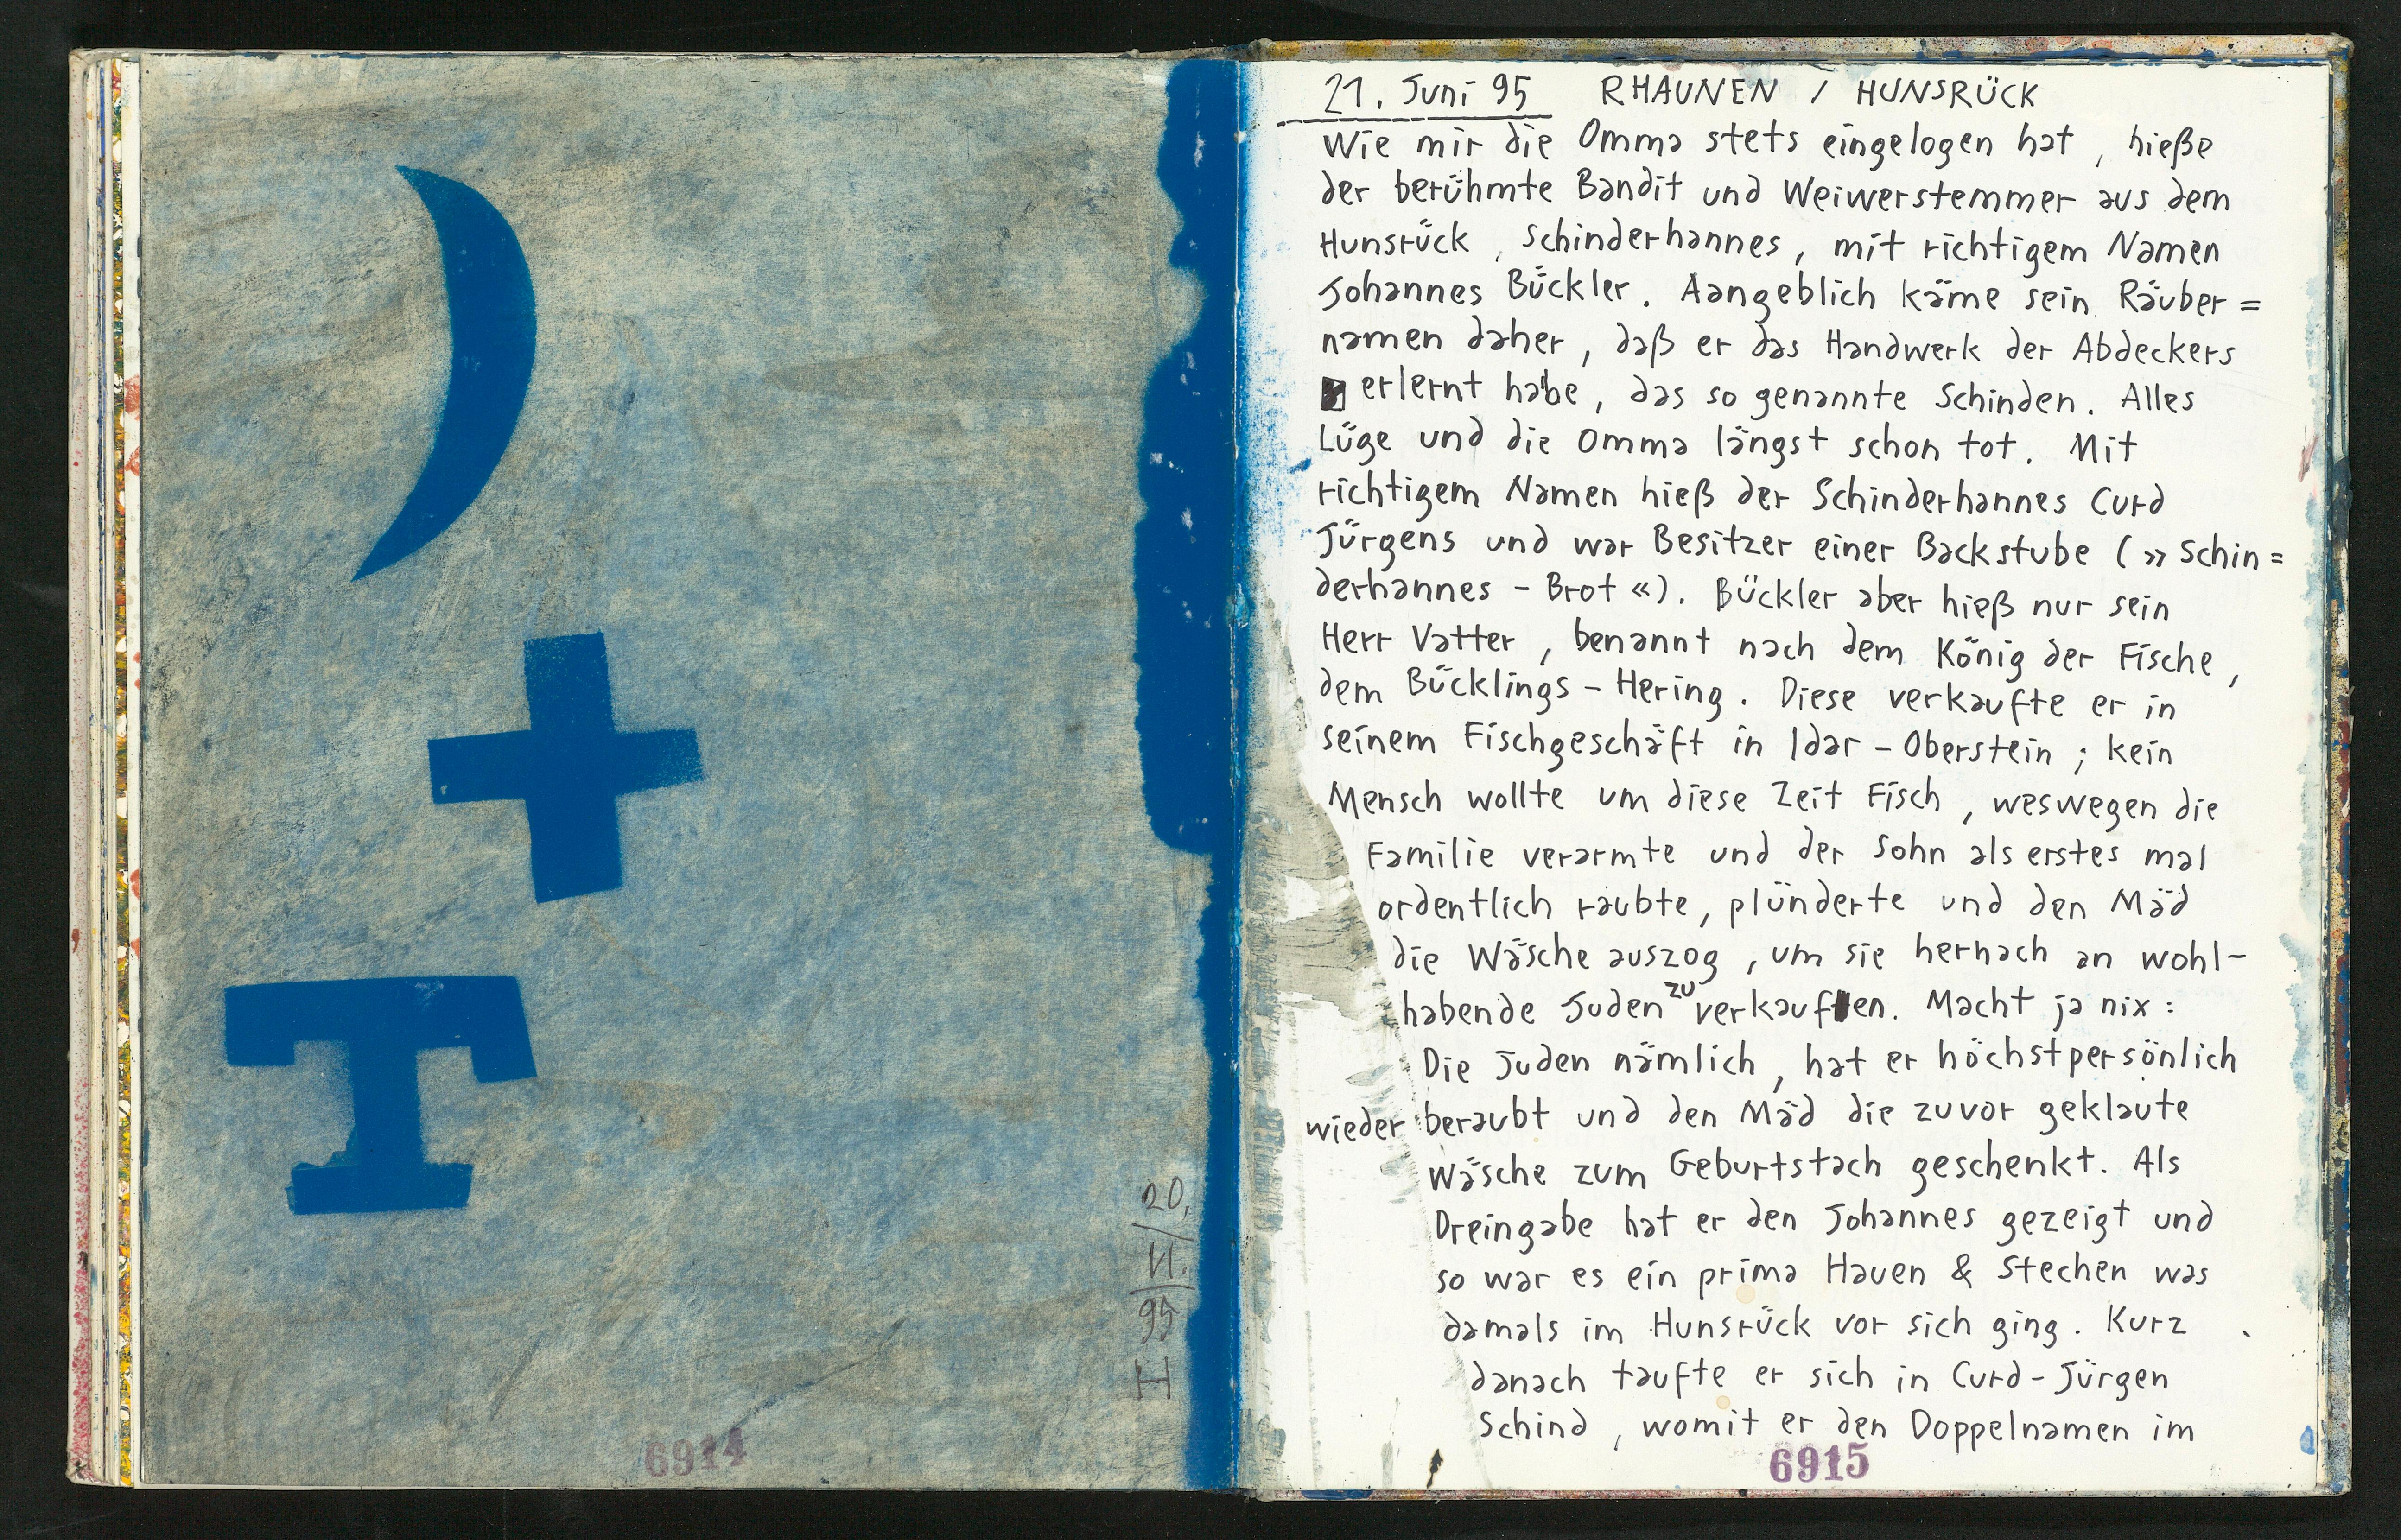 20.
VI.
95
H
6914
21. Juni 95 RHAUNEN / HUNSRÜCK
Wie mir die Omma stets eingelogen hat, hieße
der berühmte Bandit und Weiwerstemmer aus dem
Hunsrück, Schinderhannes, mit richtigem Namen
Johannes Bückler. Aangeblich käme sein Räuber=
namen daher, daß er das Handwerk der Abdeckers
erlernt habe, das so genannte Schinden. Alles
Lüge und die Omma längst schon tot. Mit
richtigem Namen hieß der Schinderhannes Curd
Jürgens und war Besitzer einer Backstube (»Schin=
derhannes - Brot«). Bückler aber hieß nur sein
Herr Vatter, benannt nach dem König der Fische,
dem Bücklings-Hering. Diese verkaufte er in
seinem Fischgeschäft in Idar-Oberstein; kein
Mensch wollte um diese Zeit Fisch, weswegen die
Familie verarmte und der Sohn als erstes mal
ordentlich raubte, plünderte und den Mäd
die Wäsche auszog, um sie hernach an wohl-
habende Juden zu verkaufen. Macht ja nix:
Die Juden nämlich, hat er höchstpersönlich
wieder beraubt und den Mäd die zuvor geklaute
Wäsche zum Geburtstach geschenkt. Als
Dreingabe hat er den Johannes gezeigt und
so war es ein prima Hauen & Stechen was
damals im Hunsrück vor sich ging. Kurz
danach taufte er sich in Curd-Jürgen
Schind, womit er den Doppelnamen im
6915